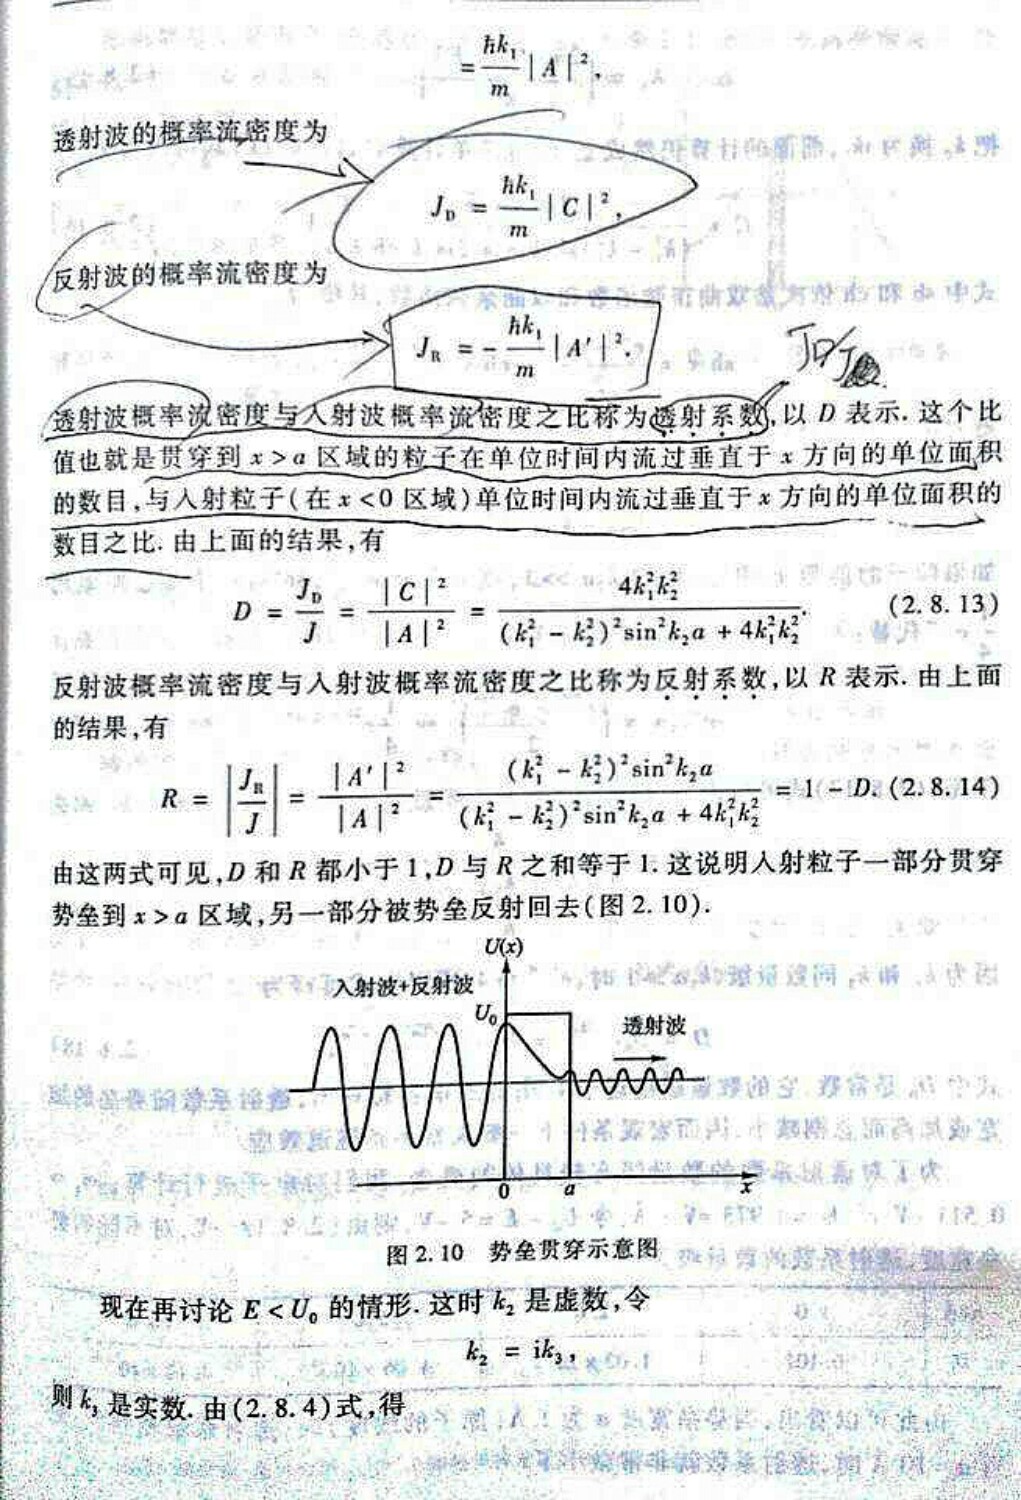 = ħk₁/m |A|²,
透射波的概率流密度为
J_D = ħk₁/m |C|²,
反射波的概率流密度为
J_R = − ħk₁/m |A′|².
J_D/J
透射波概率流密度与入射波概率流密度之比称为透射系数,以 D 表示. 这个比
值也就是贯穿到 x>a 区域的粒子在单位时间内流过垂直于 x 方向的单位面积
的数目,与入射粒子(在 x<0 区域)单位时间内流过垂直于 x 方向的单位面积的
数目之比. 由上面的结果,有
D = J_D/J = |C|²/|A|² = 4k₁²k₂²/((k₁² − k₂²)²sin²k₂a + 4k₁²k₂²). (2.8.13)
反射波概率流密度与入射波概率流密度之比称为反射系数,以 R 表示. 由上面
的结果,有
R = |J_R/J| = |A′|²/|A|² = (k₁² − k₂²)²sin²k₂a/((k₁² − k₂²)²sin²k₂a + 4k₁²k₂²) = 1 − D. (2.8.14)
由这两式可见,D 和 R 都小于 1,D 与 R 之和等于 1. 这说明入射粒子一部分贯穿
势垒到 x>a 区域,另一部分被势垒反射回去(图 2.10).
U(x)
入射波+反射波
U₀
透射波
0
a
x
图 2.10 势垒贯穿示意图
现在再讨论 E<U₀ 的情形. 这时 k₂ 是虚数,令
k₂ = ik₃,
则 k₃ 是实数. 由(2.8.4)式,得